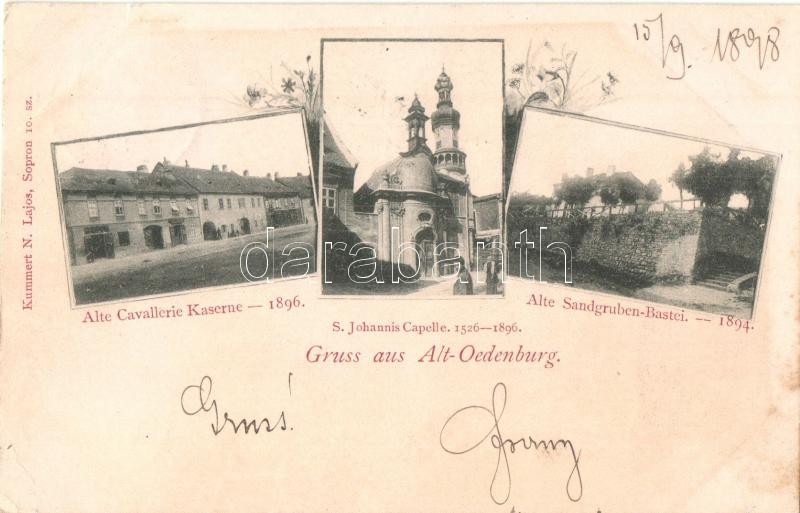 15/9 1898
Kummert N. Lajos, Sopron 10. sz.
darabanth
Alte Cavallerie Kaserne — 1896.
S. Johannis Capelle. 1526—1896.
Alte Sandgruben-Bastei. — 1894.
Gruss aus Alt-Oedenburg.
Gruss!